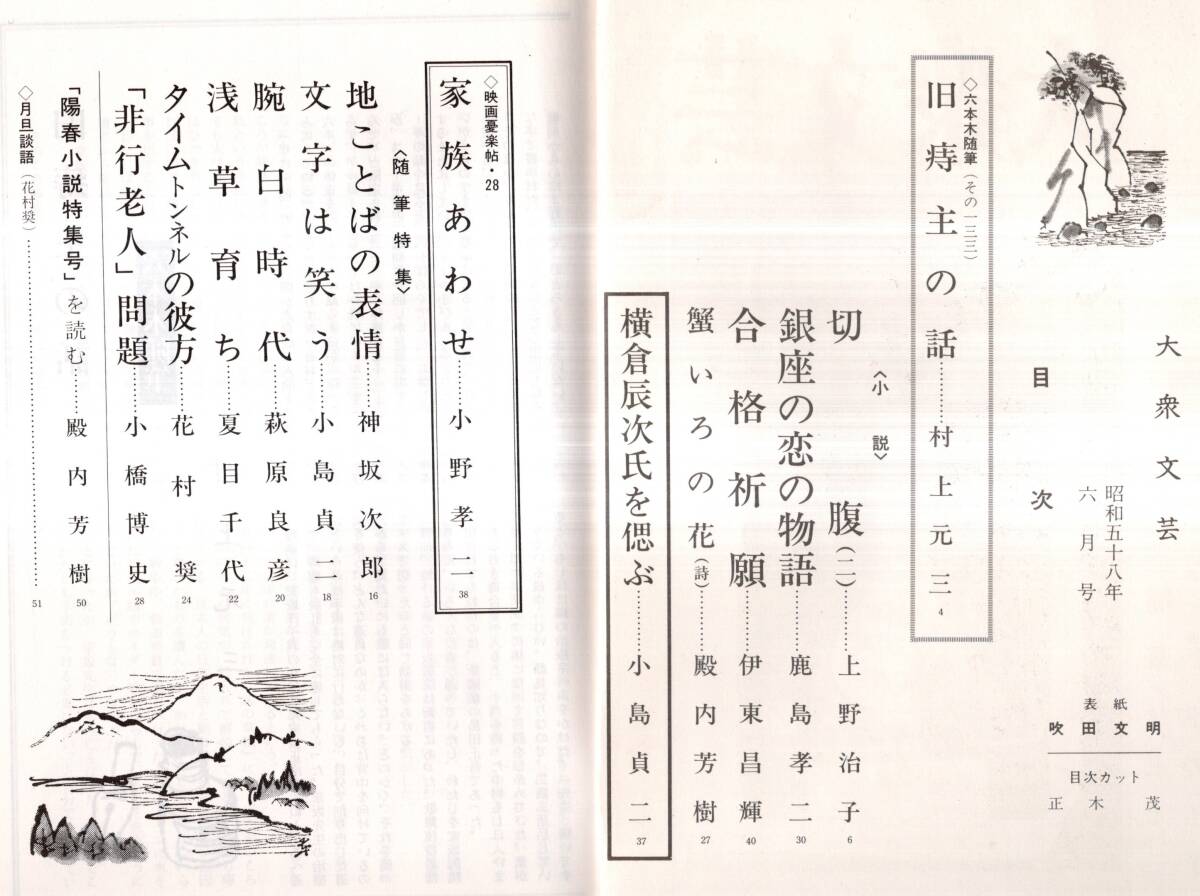 大衆文芸
昭和五十八年
六月号
目次
表紙
吹田文明
目次カット
正木茂
◇六本木随筆(その一三三)
旧痔主の話………村上元三 4
〈小説〉
切腹(二)………上野治子 6
銀座の恋の物語………鹿島孝二 30
合格祈願………伊東昌輝 40
蟹いろの花(詩)………殿内芳樹 27
横倉辰次氏を偲ぶ………小島貞二 37
◇映画憂楽帖・28
家族あわせ………小野孝二 38
〈随筆特集〉
地ことばの表情………神坂次郎 16
文字は笑う………小島貞二 18
腕白時代………萩原良彦 20
浅草育ち………夏目千代 22
タイムトンネルの彼方………花村奨 24
「非行老人」問題………小橋博史 28
「陽春小説特集号」を読む………殿内芳樹 50
◇月旦談語(花村奨)………51